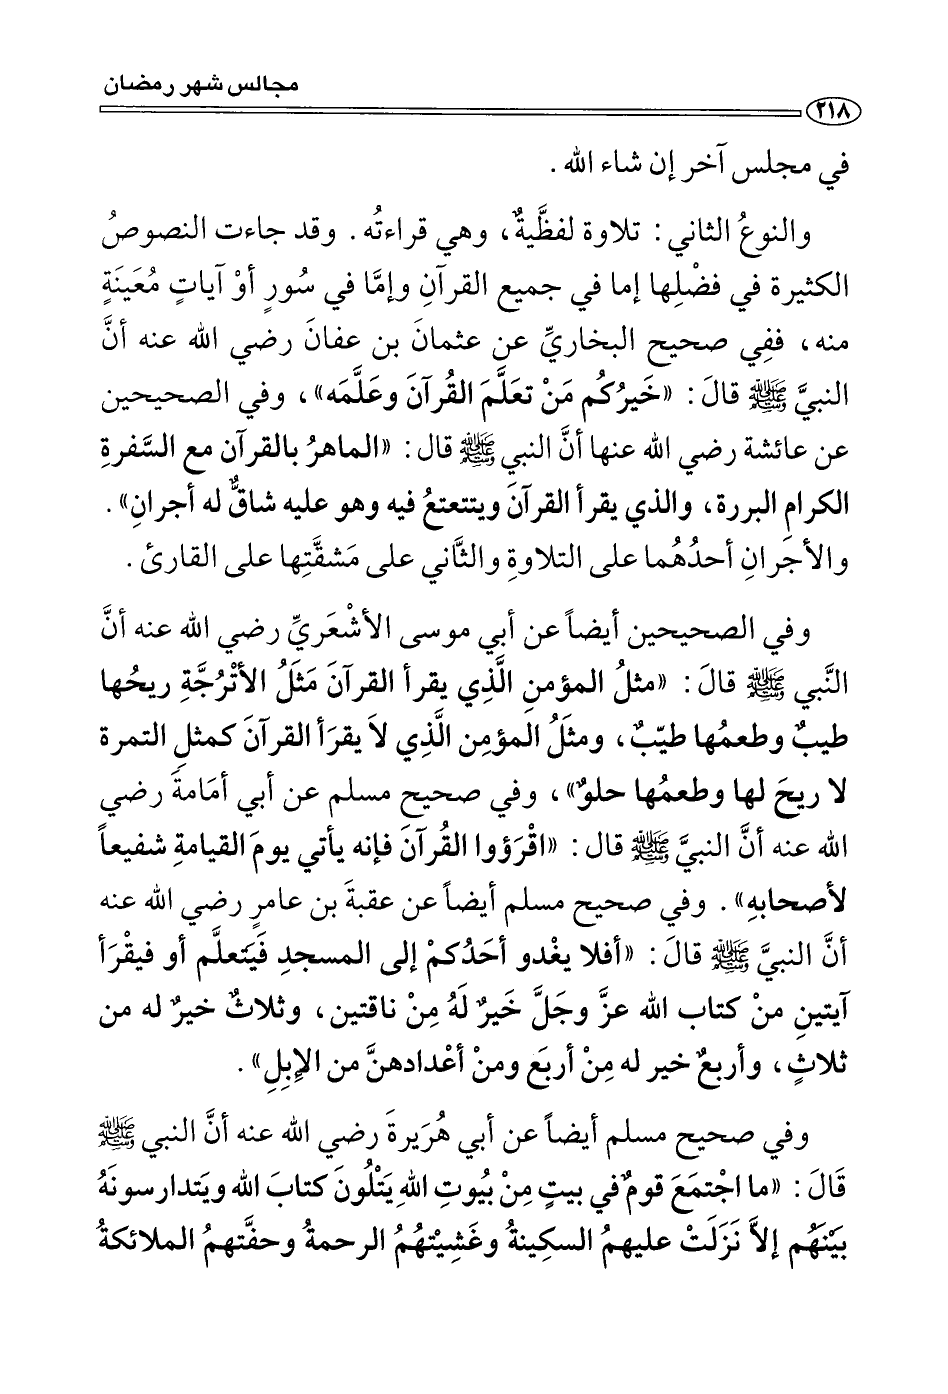 مجالس شهر رمضان
٢١٨
في مجلس آخر إن شاء الله .
والنوعُ الثاني : تلاوة لفظَّيةٌ، وهي قراءتُه . وقد جاءت النصوصُ
الكثيرة في فضْلِها إما في جميع القرآنِ وإمَّا في سُورٍ أوْ آياتٍ مُعَينَةٍ
منه، ففِي صحيح البخاريِّ عن عثمانَ بن عفانَ رضي الله عنه أنَّ
النبيَّ ﷺ قالَ : «خَيرُكُم مَنْ تعَلَّمَ القُرآنَ وعَلَّمَه»، وفي الصحيحين
عن عائشة رضي الله عنها أنَّ النبي ﷺ قال : «الماهرُ بالقرآن مع السَّفرةِ
الكرامِ البررة، والذي يقرأ القرآنَ ويتتعتعُ فيه وهو عليه شاقٌّ له أجرانِ» .
والأجَرانِ أحدُهُما على التلاوةِ والثَّاني على مَشقَّتِها على القارئ .
وفي الصحيحين أيضاً عن أبي موسى الأشْعَريِّ رضي الله عنه أنَّ
النَّبي ﷺ قالَ : «مثلُ المؤمنِ الَّذِي يقرأ القرآنَ مَثَلُ الأتْرُجَّةِ ريحُها
طيبٌ وطعمُها طيّبٌ، ومثَلُ المؤمِن الَّذِي لاَ يقرَأ القرآنَ كمثلِ التمرة
لا ريحَ لها وطعمُها حلوٌ»، وفي صحيح مسلم عن أبي أمَامةَ رضي
الله عنه أنَّ النبيَّ ﷺ قال : «اقْرَؤوا القُرآنَ فإنه يأتي يومَ القيامةِ شفيعاً
لأصحابهِ» . وفي صحيح مسلم أيضاً عن عقبةَ بن عامرٍ رضي الله عنه
أنَّ النبيَّ ﷺ قالَ : «أفلا يغْدو أحَدُكمْ إلى المسجدِ فَيَتعلَّم أو فيقْرَأ
آيتينِ منْ كتاب الله عزَّ وجَلَّ خَيرٌ لَهُ مِنْ ناقتين، وثلاثٌ خيرٌ له من
ثلاثٍ، وأربعٌ خير له مِنْ أربَع ومنْ أعْدادهنَّ من الإِبلِ» .
وفي صحيح مسلم أيضاً عن أبي هُرَيرةَ رضي الله عنه أنَّ النبي ﷺ
قَالَ : «ما اجْتمَعَ قومٌ في بيتٍ مِنْ بيُوتِ اللهِ يَتْلُونَ كتابَ الله ويَتدارسونَهُ
بيْنَهُم إلاَّ نَزَلَتْ عليهمُ السكِينةُ وغَشِيْتهُمُ الرحمةُ وحفَّتهمُ الملائكةُ